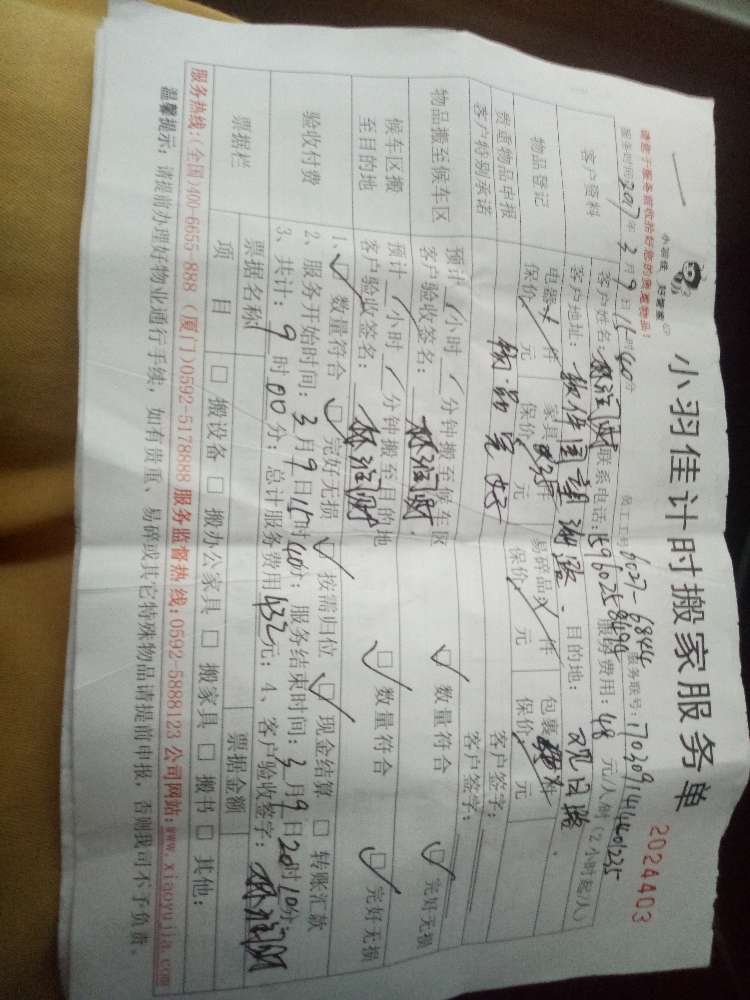 小羽佳计时搬家服务单
2024403
小羽佳 好管家
请您于服务前收拾好您的贵重物品!
员工工号: 6027-6844 服务账号:
服务时间: 2017年3月9日15时40分
客户资料
客户姓名: 联系电话: 服务费用: 48元/人/时(2小时起/人)
客户地址: 软件园 目的地: 观日路
物品登记
电器 件 家具 件 易碎品 件 包裹 件
保价 元 保价 元 保价 元 保价 元
贵重物品申报 客户签字:
客户特别承诺 客户签字:
物品搬至候车区
预计 小时 分钟搬至候车区 ☑ 数量符合 ☑ 完好无损
客户验收签名:
候车区搬至目的地
预计 小时 分钟搬至目的地 ☑ 数量符合 ☑ 完好无损
客户验收签名:
验收付费
1、☑ 数量符合 ☑ 完好无损 ☑ 按需归位 ☑ 现金结算 □ 转账汇款
2、服务开始时间: 3月9日15时40分; 服务结束时间: 3月9日20时10分
3、共计: 9时00分; 总计服务费用432元; 4、客户验收签字:
票据栏
票据名称 票据金额
项目 □ 搬设备 □ 搬办公家具 □ 搬家具 □ 搬书 □ 其他:
服务热线:(全国)400-6655-888 (厦门)0592-5178888 服务监督热线:0592-5888123 公司网站:www.xiaoyujia.com
温馨提示: 请提前办理好物业通行手续, 如有贵重、易碎或其它特殊物品请提前申报, 否则我司不予负责。